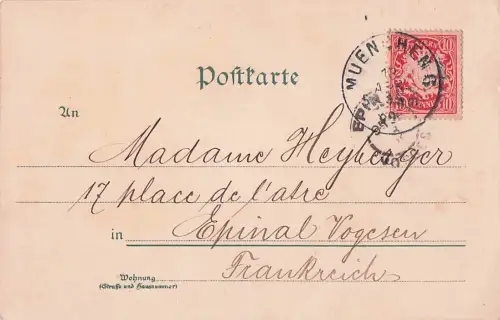 MUENCHEN
10
10
Postkarte
An
Madame Heyberger
17 place de l'atre
in Epinal Vogesen
Frankreich
Wohnung
(Straße und Hausnummer)